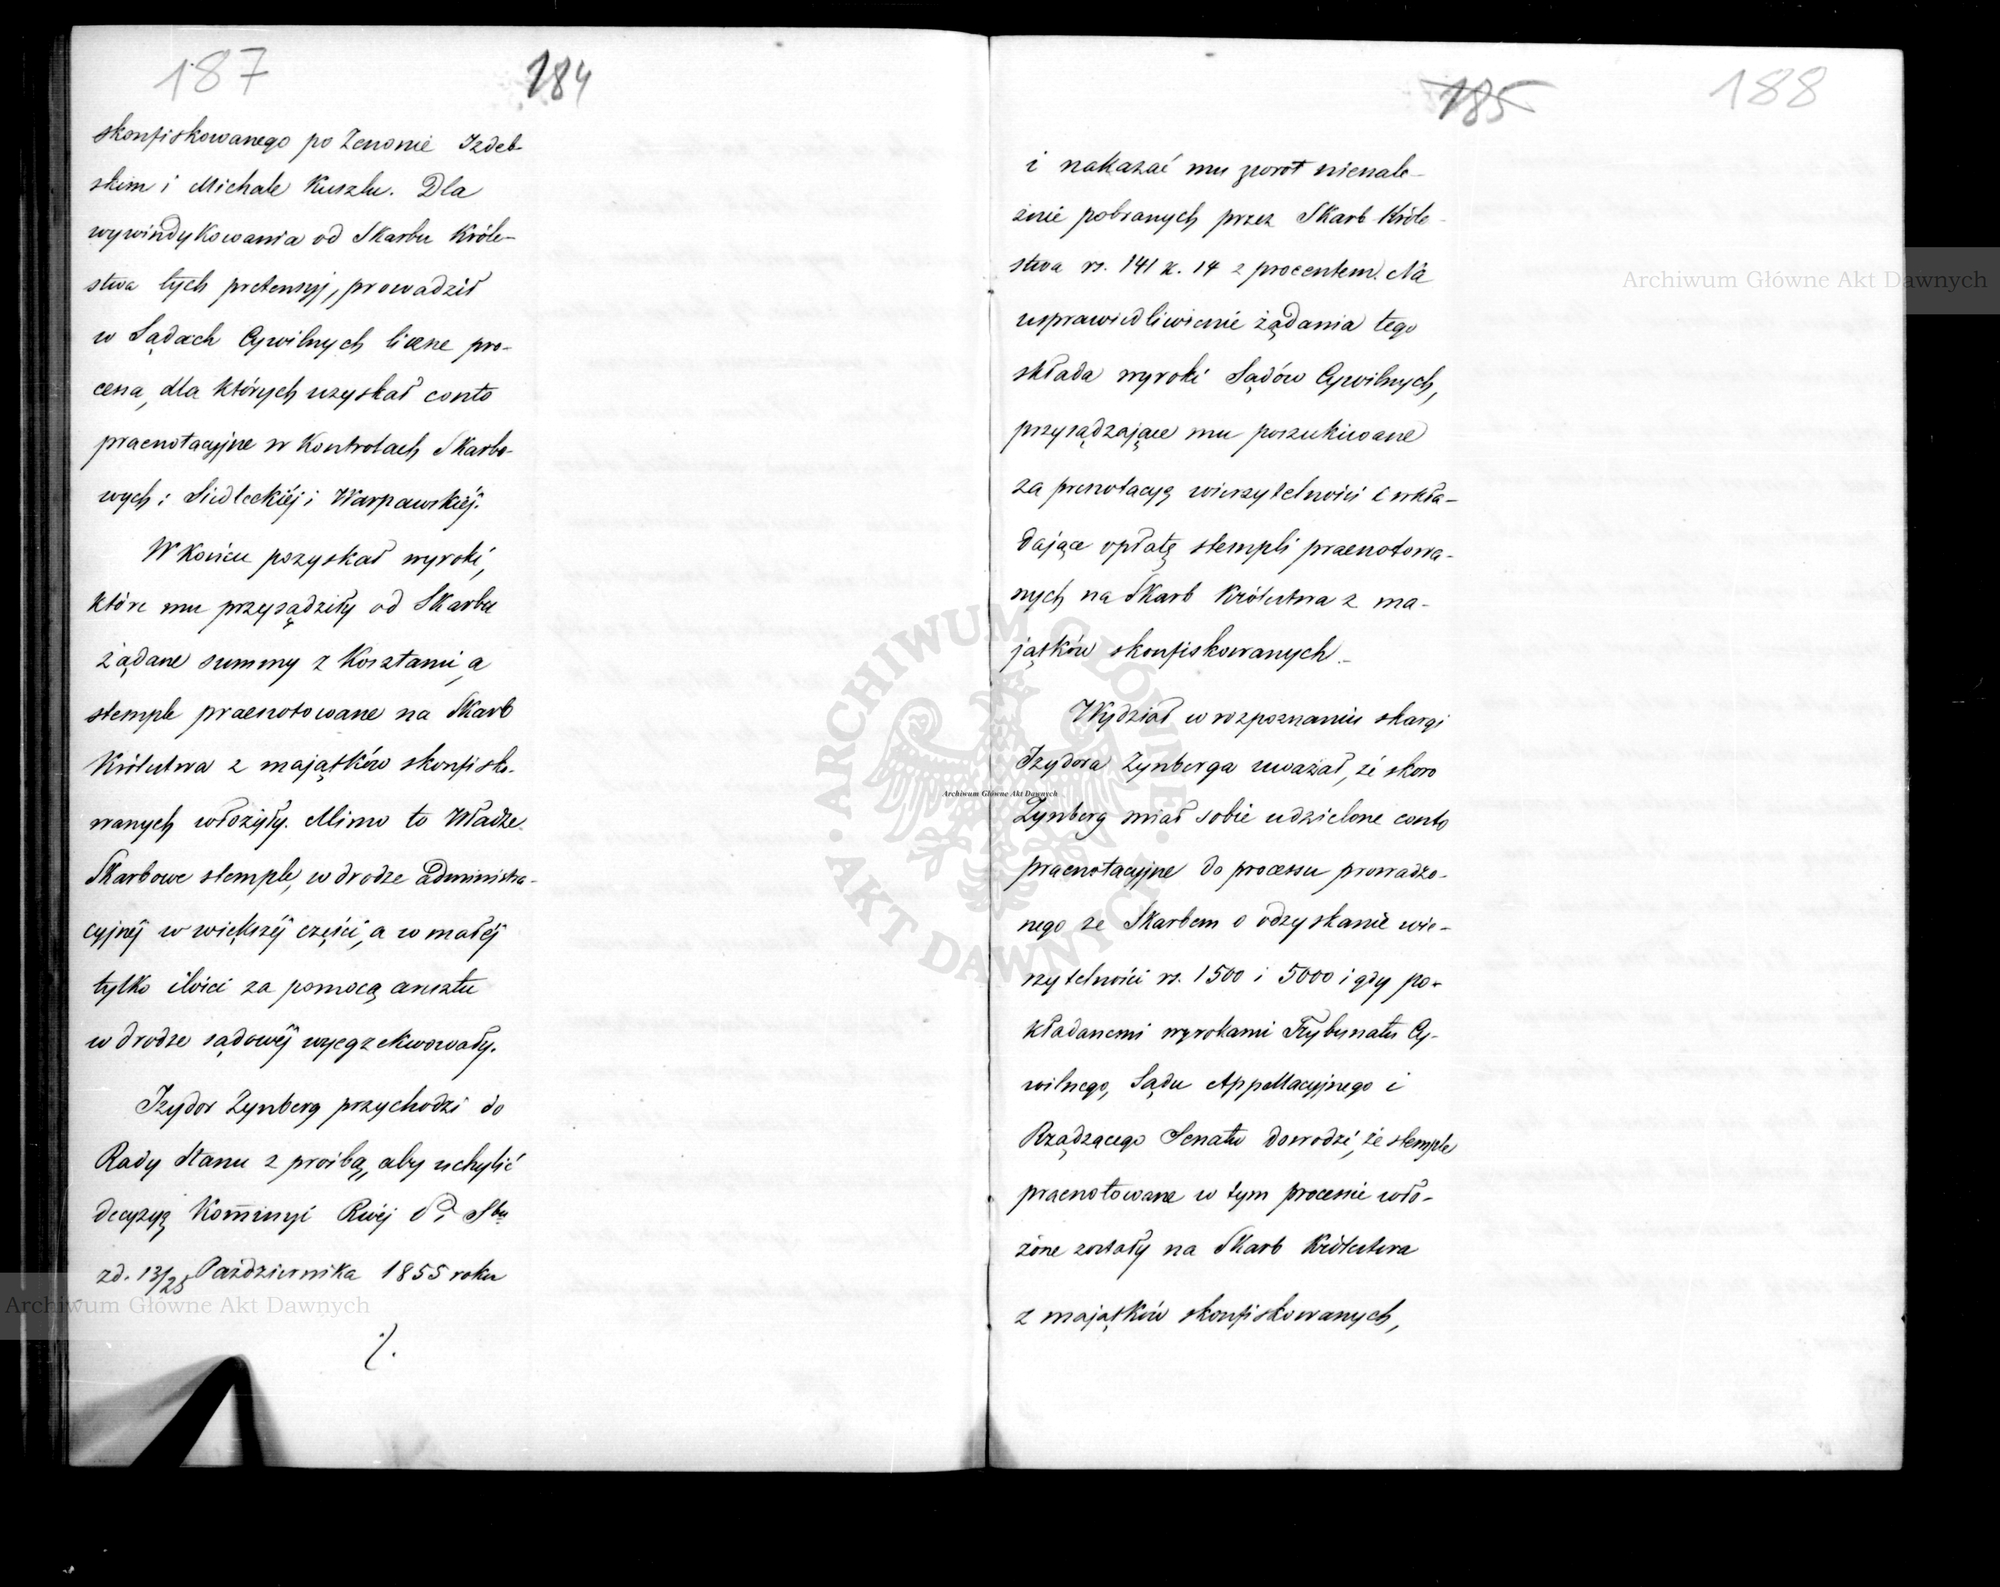 187
184
skonfiskowanego po Zenonie Izdeb-
skim i Michale Kuszlu. Dla
wywindykowania od Skarbu Króle-
stwa tych pretensyj, prowadził
w Sądach Cywilnych liczne pro-
cena, dla których uzyskał conto
praenotacyjne w Kontrolach Skarbo-
wych: Siedleckiéj i Warszawskiéj.
W końcu pozyskał wyroki,
które mu przysądziły od Skarbu
żądane summy z Kosztami, a
stemple praenotowane na Skarb
Królestwa z majątków skonfisko-
wanych włożyły. Mimo to Władze
Skarbowe stemple, w drodze administra-
cyjnéj w większéj części, a w małéj
tylko ilości za pomocą aresztu
w drodze sądowéj wyegzekwowały.
Izydor Zynberg przychodzi do
Rady Stanu z prośbą, aby uchylić
decyzyą Kommisyi Rwéj Sbu
z d. 13/25 Października 1855 roku
./.
185
188
i nakazać mu zwrot nienale-
żnie pobranych przez Skarb Króle-
stwa rs. 141 k. 14 z procentem. Na
usprawiedliwienie żądania tego
składa wyroki Sądów Cywilnych,
przysądzające mu poszukiwane
za prenotacyą wierzytelności i wkła-
dające opłatę stempli praenotowa-
nych na Skarb Królestwa z ma-
jątków skonfiskowanych.
Wydział w rozpoznaniu skargi
Izydora Zynberga uważał, że skoro
Zynberg miał sobie udzielone conto
praenotacyjne do processu prowadzo-
nego ze Skarbem o odzyskanie wie-
rzytelności rs. 1500 i 5000 i gdy po-
kładanemi wyrokami Trybunału Cy-
wilnego, Sądu Appellacyjnego i
Rządzącego Senatu dowodzi, że stemple
praenotowane w tym procesie wło-
żone zostały na Skarb Królestwa
z majątków skonfiskowanych,
Archiwum Główne Akt Dawnych
Archiwum Główne Akt Dawnych
Archiwum Główne Akt Dawnych
ARCHIWUM GŁÓWNE AKT DAWNYCH